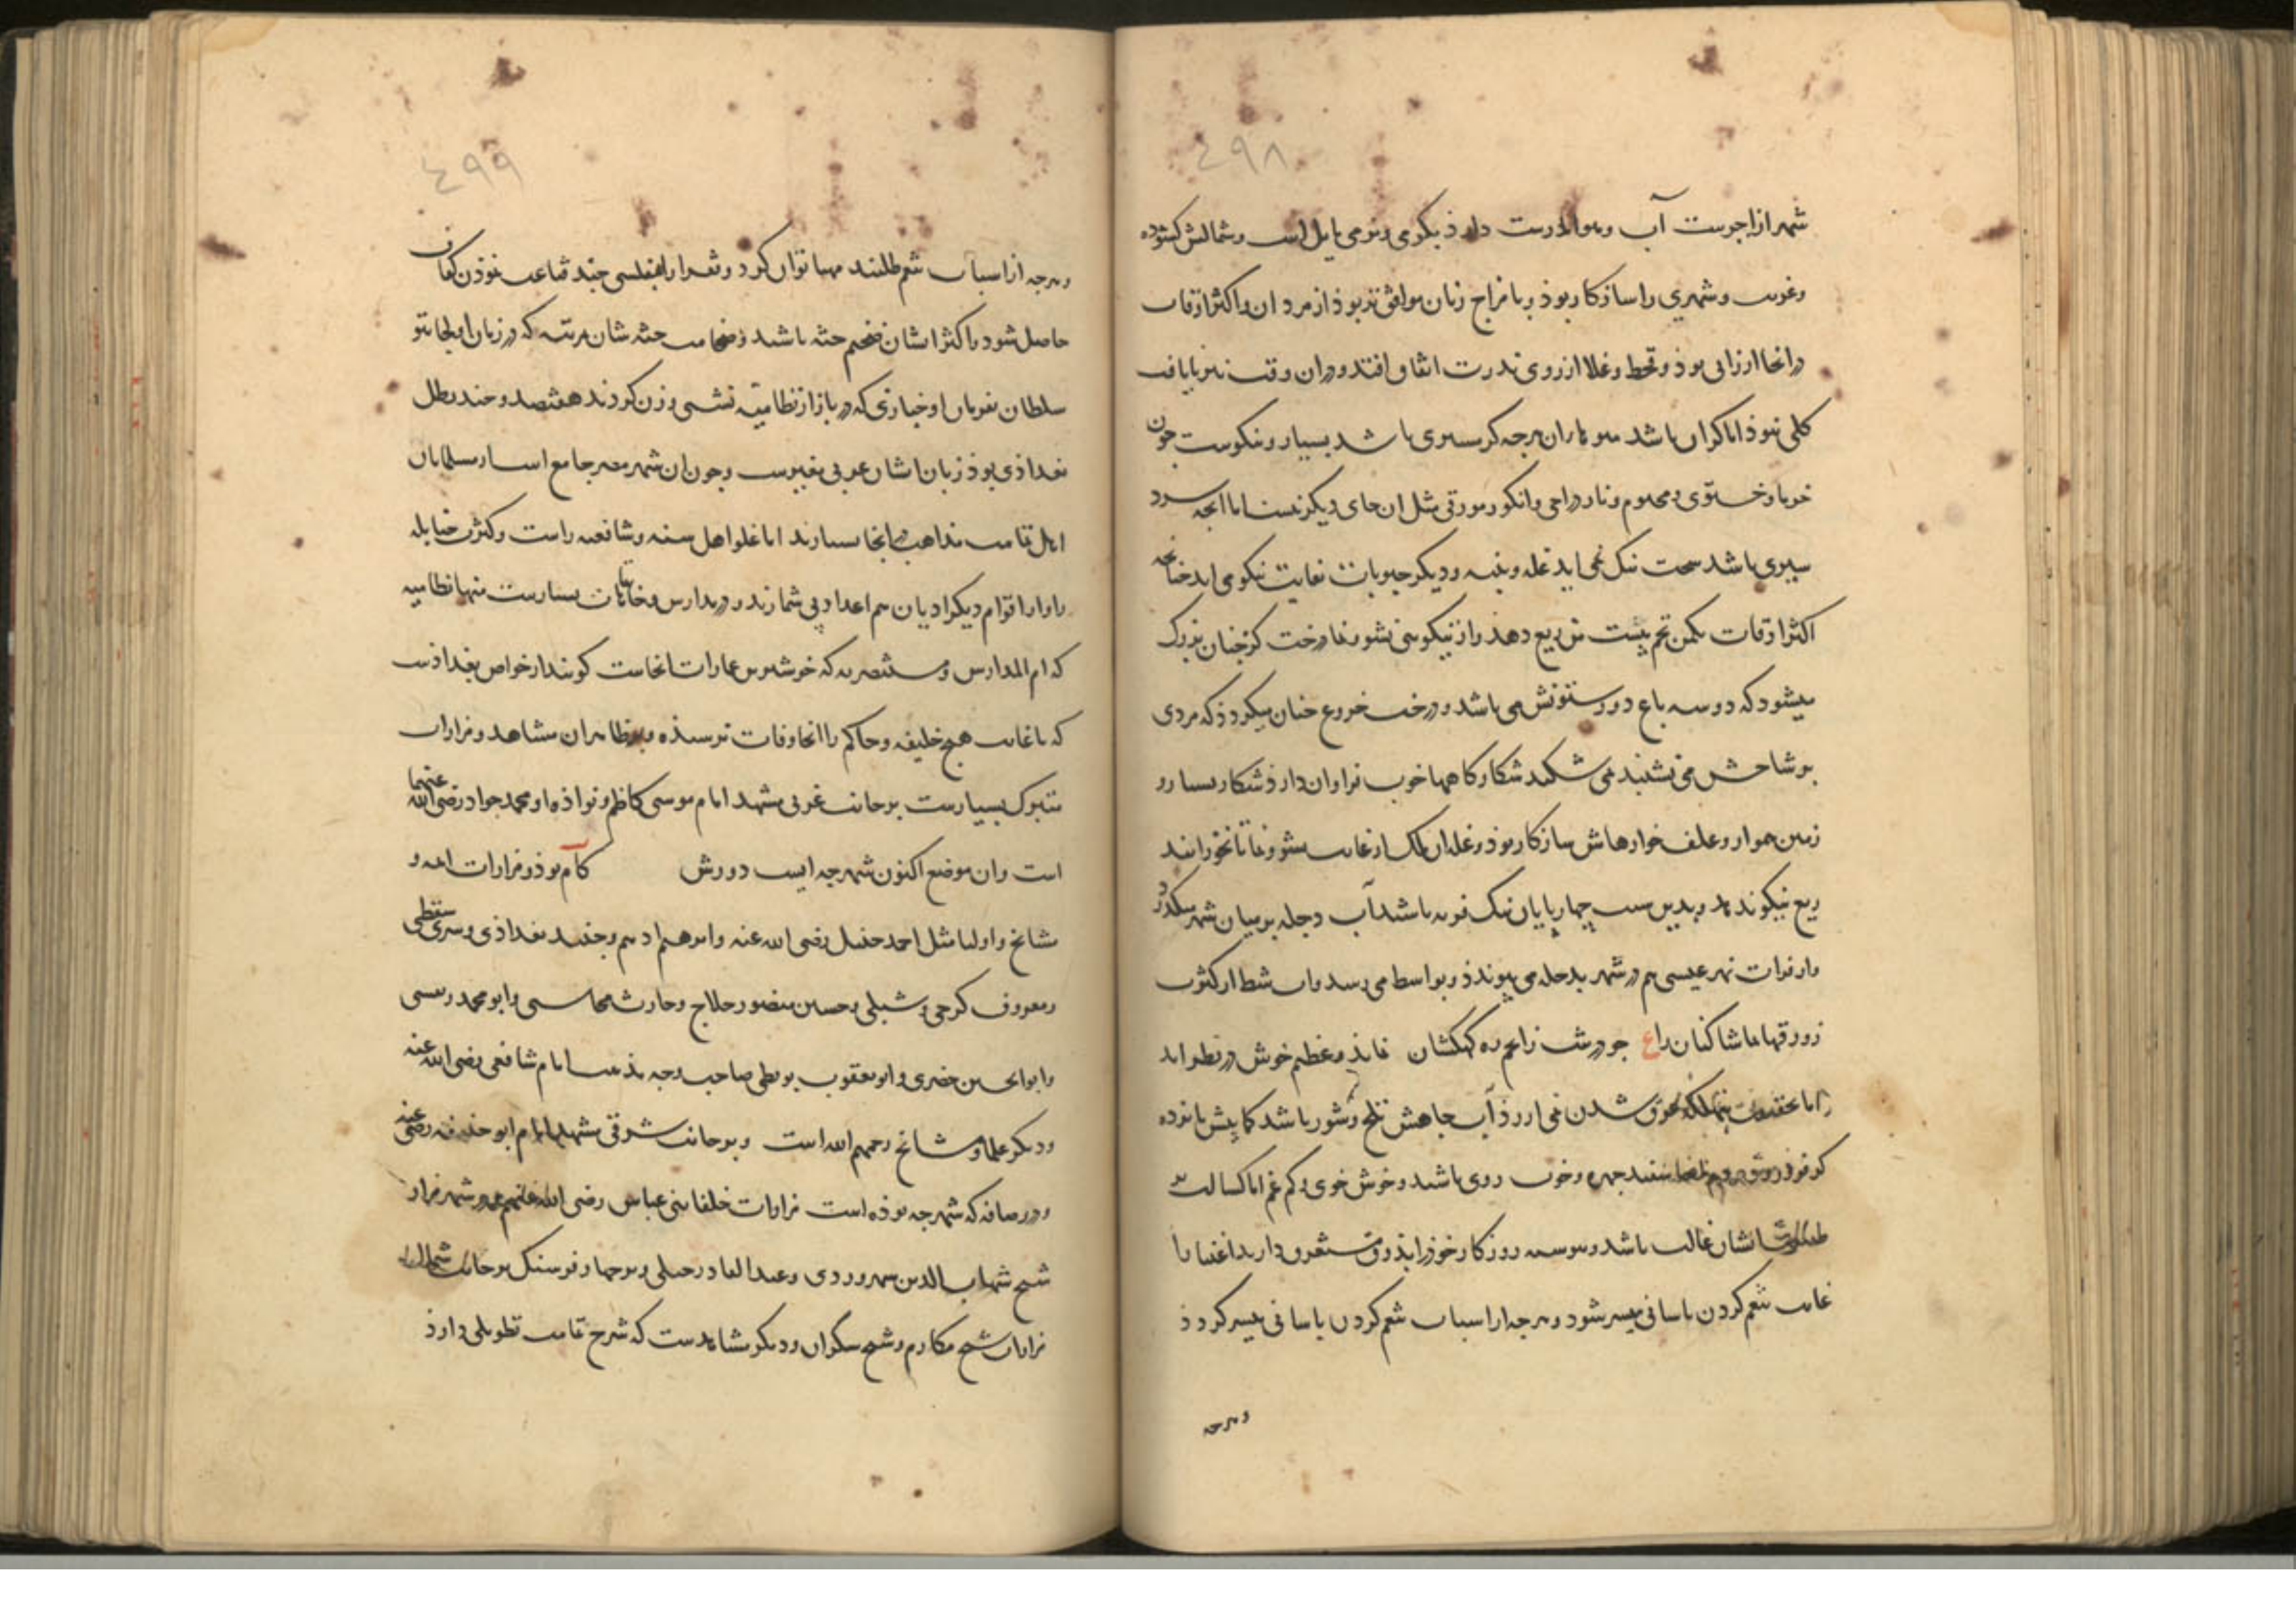 ٤٩٨
شهر ازاجرست آب وهوا درست دارد بگرمی ونرمی مایل است وشمالش کشوده
وغریب وشهری را سازکار بوذ وبا مزاج زنان موافق تر بوذ از مردان واکثر اوقات
درانجا ارزانی بوذ وقحط وغلا از روی ندرت اتفاق افتد ودران وقت نیز نایافت
کلی نبوذ اما کران باشد میوهاران هرچه کرمسیری باشد بسیار ونیکوست چون
خرما وخستوی ومحتوم ونار دراجی وانکور مورقی مثل ان جای دیکر نیست اما انچه سرد
سیری باشد سخت نیک نمی اید غله وپنبه ودیکر حبوبات بغایت نیکو می اید چنانچه
اکثر اوقات یکمن تخم بیست من ریع دهد واز نیکویی نشو ونما درخت کز چنان بزرک
میشود که دو سه باع دور ستونش می باشد ودرخت خروع چنان میکردذ که مردی
بر شاخش می نشیند نمی شکند شکارکاهها خوب فراوان دارذ شکار بسیار و
زمین هموار وعلف خوارهاش سازکار بوذ وغله ان ملک از غایت نشو ونما تا نخورانند
ریع نیکو ندهد وبدین سبب چهارپایان نیک فربه باشد آب دجله بر میان شهر میکذرد
واز فرات نهر عیسی هم در شهر بدجله می پیوندذ وبواسط می رسد وان شط از کثرت
زورقها تماشا کنان را ع جو درشب زانجم ره کهکشان نمایذ وعظیم خوش در نظر اید
اما بحقیقت بتهلکه غرق شدن نمی ارزذ آب چاهش تلخ وشور باشد کما بیش پانزده
کز فرو روند ومردم انجا سفید چهره وخوب روی باشد وخوش خوی وکم غم اما کسالت بر
طبیعتشان غالب باشد وپیوسته روزکار خوذرا بذوق مستغرق دارند اغنیا را
غایت تنعم کردن باسانی میسر شود وهرچه از اسباب تنعم کردن باسانی میسر کردذ
وهرچه
٤٩٩
وهرچه از اسباب تنعم طلبند مهیا توان کرد وفقرا را بفلسی چند قناعت نموذن کفاف
حاصل شود واکثر ایشان ضخیم جثه باشند وضخامت جثه شان مرتبه که در زمان اولجایتو
سلطان بفرمان او خبازی که در بازار نظامیه نشستی وزن کردند هفتصد وچند رطل
بغداذی بوذ زبان ایشان عربی مغیرست وچون ان شهر مصر جامع است از مسلمانان
اهل تمامت مذاهب درانجا بسیارند اما غلو اهل سنه وشافعیه راست وکثرت حنابله
را واز اقوام دیکر ادیان هم اعداد بی شمارند ودر مدارس وخانقاهات بسیارست منها نظامیه
که ام المدارس ومستنصریه که خوشترین عمارات انجاست کویند از خواص بغداذست
که تا غایت هیچ خلیفه وحاکم را انجا وفات نرسیذه وبر ظاهر ان مشاهد ومزارات
متبرک بسیارست بر جانب غربی مشهد امام موسی کاظم ونواذه او محمد جواد رضی الله عنهما
است وان موضع اکنون شهرچه ایست دورش کام بوذ ومزارات ایمه و
مشایخ واولیا مثل احمد حنبل رضی الله عنه وابرهیم ادهم وجنید بغداذی وسری سقطی
ومعروف کرخی وشبلی وحسین منصور حلاج وحارث محاسبی وابو محمد رتیسی
وابو الحسین حضری وابو یعقوب بویطی صاحب وجه مذهب امام شافعی رضی الله عنه
ودیکر علما ومشایخ رحمهم الله است وبر جانب شرقی مشهد امام ابو حنیفه رضی عنه
ودر رصافه که شهرچه بوذه است مزارات خلفا بنی عباس رضی الله عنهم ودر شهر مزار
شیخ شهاب الدین سهروردی وعبد القادر جیلی وبر چهار فرسنک بر جانب شمال
مزارات شیخ مکارم وشیخ سکران ودیکر مشاهدست که شرح تمامت تطویلی دارذ